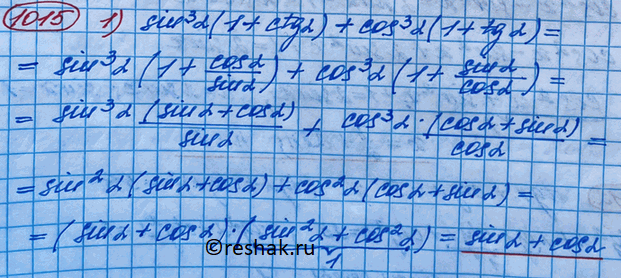 1015 1) sin³α(1+ctgα)+cos³α(1+tgα)=
= sin³α (1+ cosα/sinα) + cos³α (1+ sinα/cosα) =
= sin³α (sinα+cosα)/sinα + cos³α·(cosα+sinα)/cosα =
= sin²α (sinα+cosα)+cos²α(cosα+sinα) =
= (sinα+cosα)·(sin²α+cos²α) = sinα+cosα
1
©reshak.ru